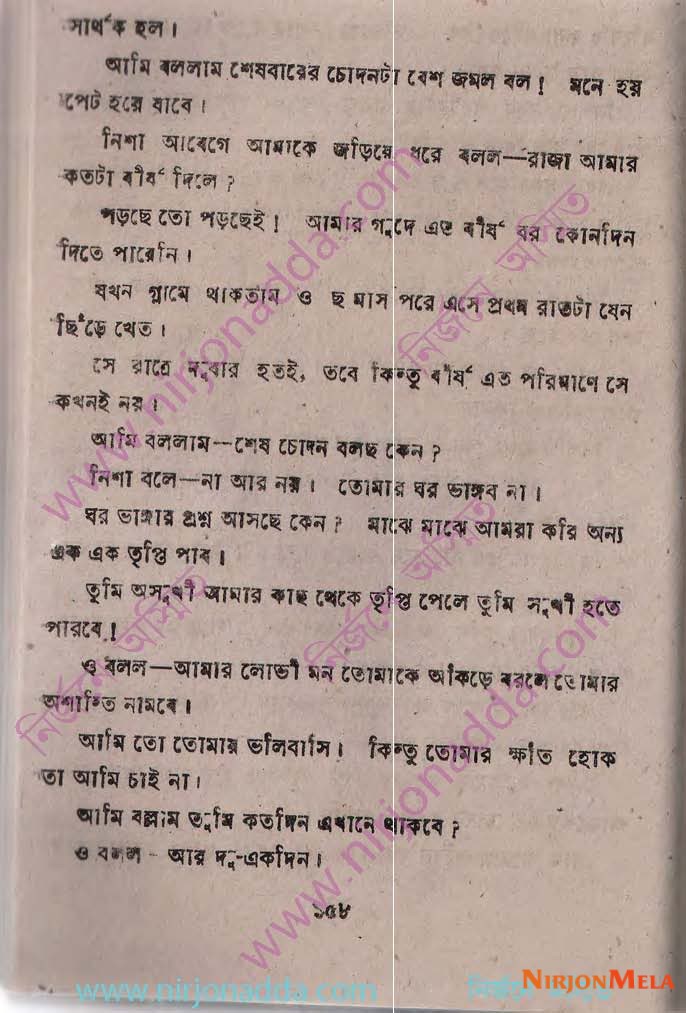 সার্থক হল।
আমি বললাম শেষবারের চোদনটা বেশ জমল বল! মনে হয়
পেট হয়ে যাবে।
নিশা আবেগে আমাকে জড়িয়ে ধরে বলল—রাজা আমার
কতটা বীর্য দিলে?
পড়ছে তো পড়ছেই! আমার গুদে এত বীর্য বর কোনদিন
দিতে পারেনি।
যখন গ্রামে থাকতাম ও ছ মাস পরে এসে প্রথম রাতটা যেন
ছিঁড়ে খেত।
সে রাত্রে দুবার হতই, তবে কিন্তু বীর্য এত পরিমাণে সে
কখনই নয়।
আমি বললাম—শেষ চোদন বলছ কেন?
নিশা বলে—না আর নয়। তোমার ঘর ভাঙ্গব না।
ঘর ভাঙ্গার প্রশ্ন আসছে কেন? মাঝে মাঝে আমরা করি অন্য
এক এক তৃপ্তি পাব।
তুমি অসুখী আমার কাছ থেকে তৃপ্তি পেলে তুমি সুখী হতে
পারবে!
ও বলল—আমার লোভী মন তোমাকে আঁকড়ে ধরলে তোমার
অশান্তি নামবে।
আমি তো তোমায় ভালবাসি। কিন্তু তোমার ক্ষতি হোক
তা আমি চাই না।
আমি বল্লাম তুমি কতদিন এখানে থাকবে?
ও বলল - আর দু-একদিন।
১৫৮
www.nirjonadda.com
নির্জনে অস্মিত
নির্জনে অস্মিত
নির্জনে অস্মিত
www.nirjonadda.com
www.nirjonadda.com
NIRJONMELA